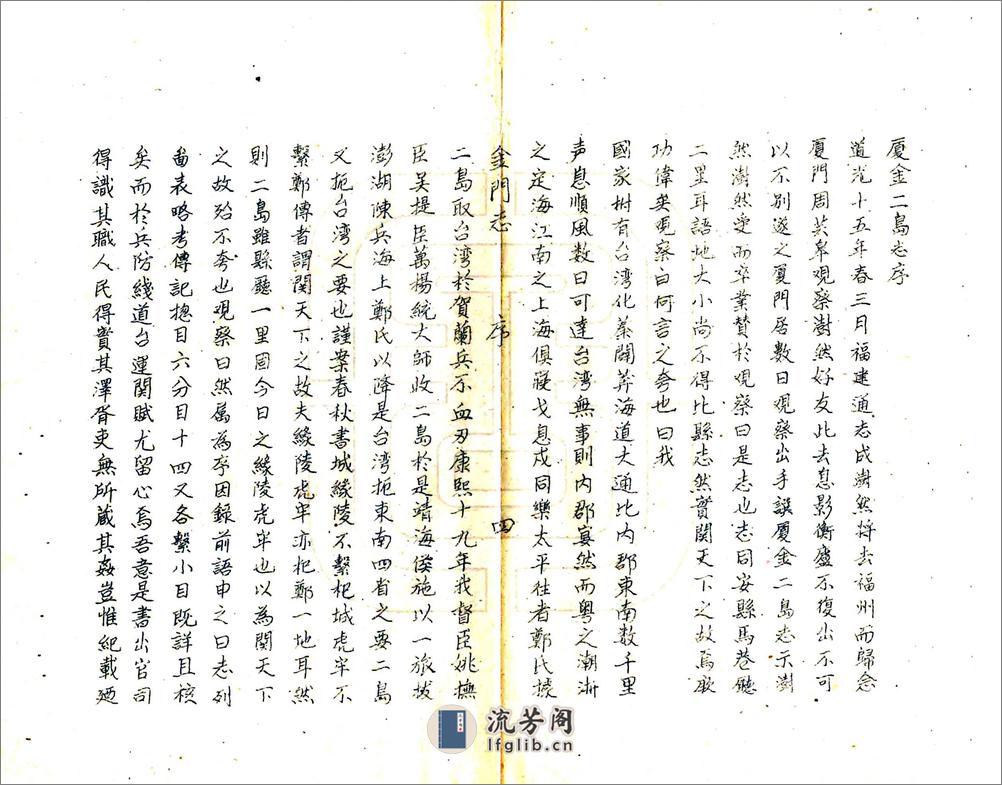 廈金二島志序
道光十五年春三月福建通志成澍然將去福州而歸念
廈門周芸皋觀察澍然好友此去息影衡廬不復出不可
以不別遂之廈門居數日觀察出手譔廈金二島志示澍
然澍然受而卒業贊於觀察曰是志也志同安縣馬巷廳
二里耳語地大小尚不得比縣志然實関天下之故焉
功偉矣觀察曰何言之夸也曰我
國家樹有台湾化蓁闢莽海道大通比內郡東南数千里
声息順風数日可達台湾無事則內郡宴然而粤之潮浙
之定海江南之上海俱寢戈息戍同樂太平往者鄭氏撓
金門志 序 四
二島取台湾於賀蘭兵不血刃康熙十九年我督臣姚撫
臣吴提臣萬楊統大師收二島於是靖海侯施以一旅拔
澎湖陳兵海上鄭氏以降是台湾扼東南四省之要二島
又扼台湾之要也謹案春秋書城緣陵不繫杞城虎牢不
繫鄭傳者謂関天下之故夫緣陵虎牢亦杞鄭一地耳然
則二島雖縣廳一里固今日之緣陵虎牢也以為関天下
之故殆不夸也观察曰然属為序因録前語申之曰志列
啚表略考傳記揔目六分目十四又各繫小目既詳且核
矣而於兵防綫道台運関賦尤留心焉吾意是書出官司
得識其職人民得賫其澤胥吏無所藏其姦豈惟紀載廼
流芳阁
lfglib.cn